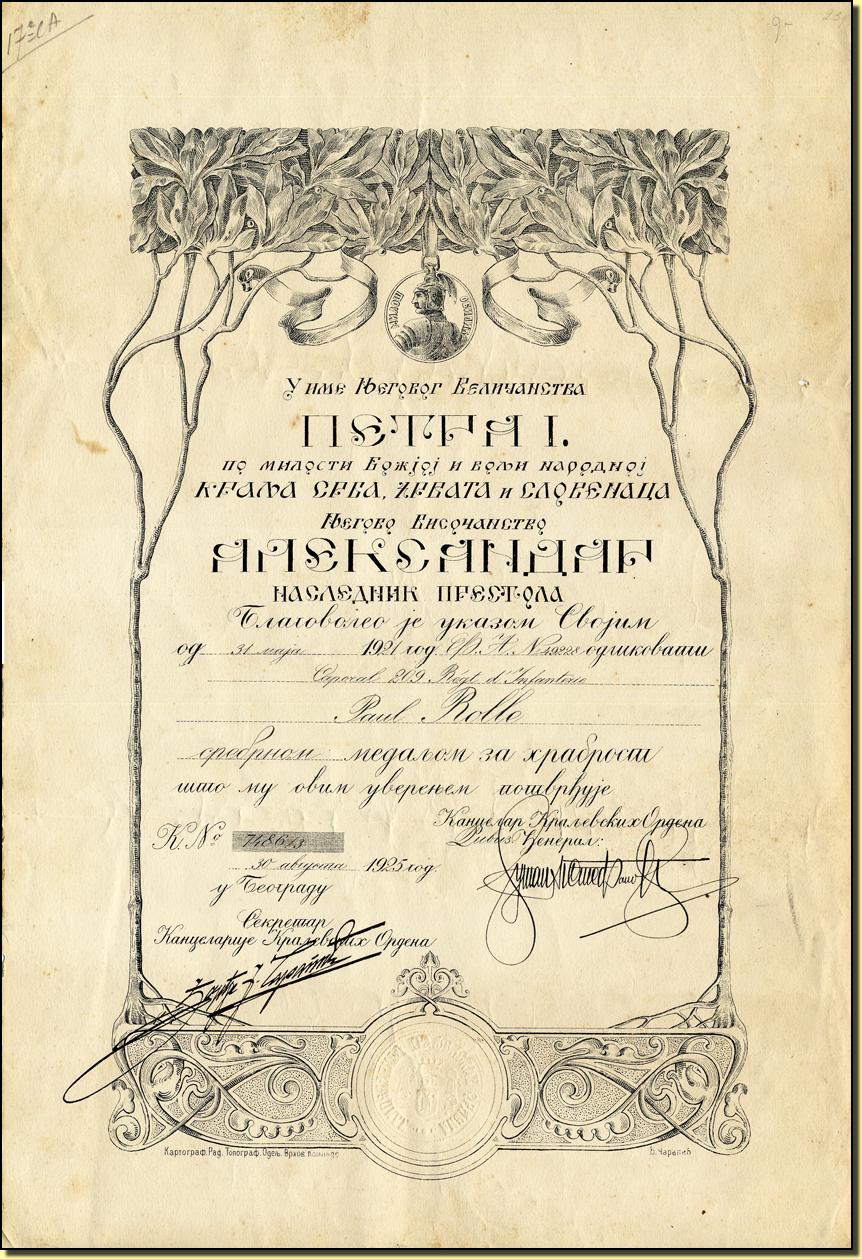 У име Његовог Величанства
ПЕТРА I.
по милости Божјој и вољи народној
КРАЉА СРБА, ХРВАТА и СЛОВЕНАЦА
Његово Височанство
АЛЕКСАНДАР
НАСЛЕДНИК ПРЕСТОЛА
Благоволео је указом Својим
од 31 маја 1921 год. № 49228 одликовати
Caporal 209 Régt d'Infanterie
Paul Rolle
сребрном медаљом за храброст
што му овим уверењем потврђује
Канцелар Краљевских Ордена
Ђенерал:
К. № 748613
30 августа 1925 год.
у Београду
Секретар
Канцеларије Краљевских Ордена
Картограф. Рад. Топограф. Одељ. Врхов. Команде
Б. Чарапић